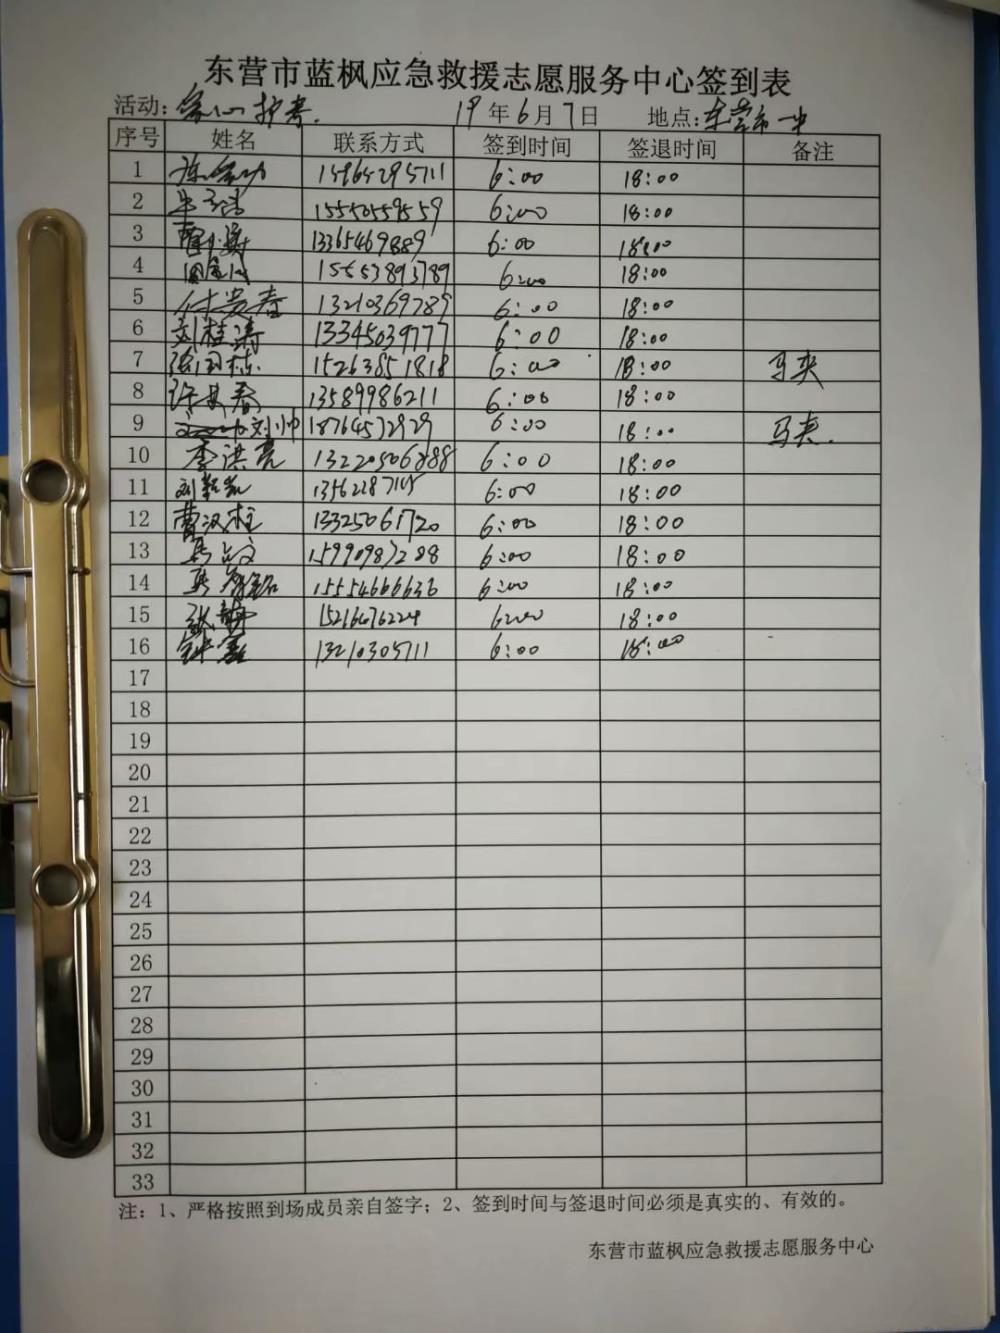 东营市蓝枫应急救援志愿服务中心签到表
活动: 爱心护考. 19年6月7日 地点:东营市一中
序号 姓名 联系方式 签到时间 签退时间 备注
1 15965295711 6:00 18:00
2 15550559559 6:00 18:00
3 13365469889 6:00 18:00
4 15553893789 6:00 18:00
5 付贵春 13210369789 6:00 18:00
6 刘桂涛 13345039777 6:00 18:00
7 张国栋 15263851818 6:00 18:00 马夹
8 许其春 13589986211 6:00 18:00
9 刘帅 18764572929 6:00 18:00 马夹.
10 李洪亮 13220506888 6:00 18:00
11 6:00 18:00
12 曹汉柱 13325061720 6:00 18:00
13 15990987288 6:00 18:00
14 15554666636 6:00 18:00
15 张静 6:00 18:00
16 13210305711 6:00 18:00
17
18
19
20
21
22
23
24
25
26
27
28
29
30
31
32
33
注：1、严格按照到场成员亲自签字；2、签到时间与签退时间必须是真实的、有效的。
东营市蓝枫应急救援志愿服务中心